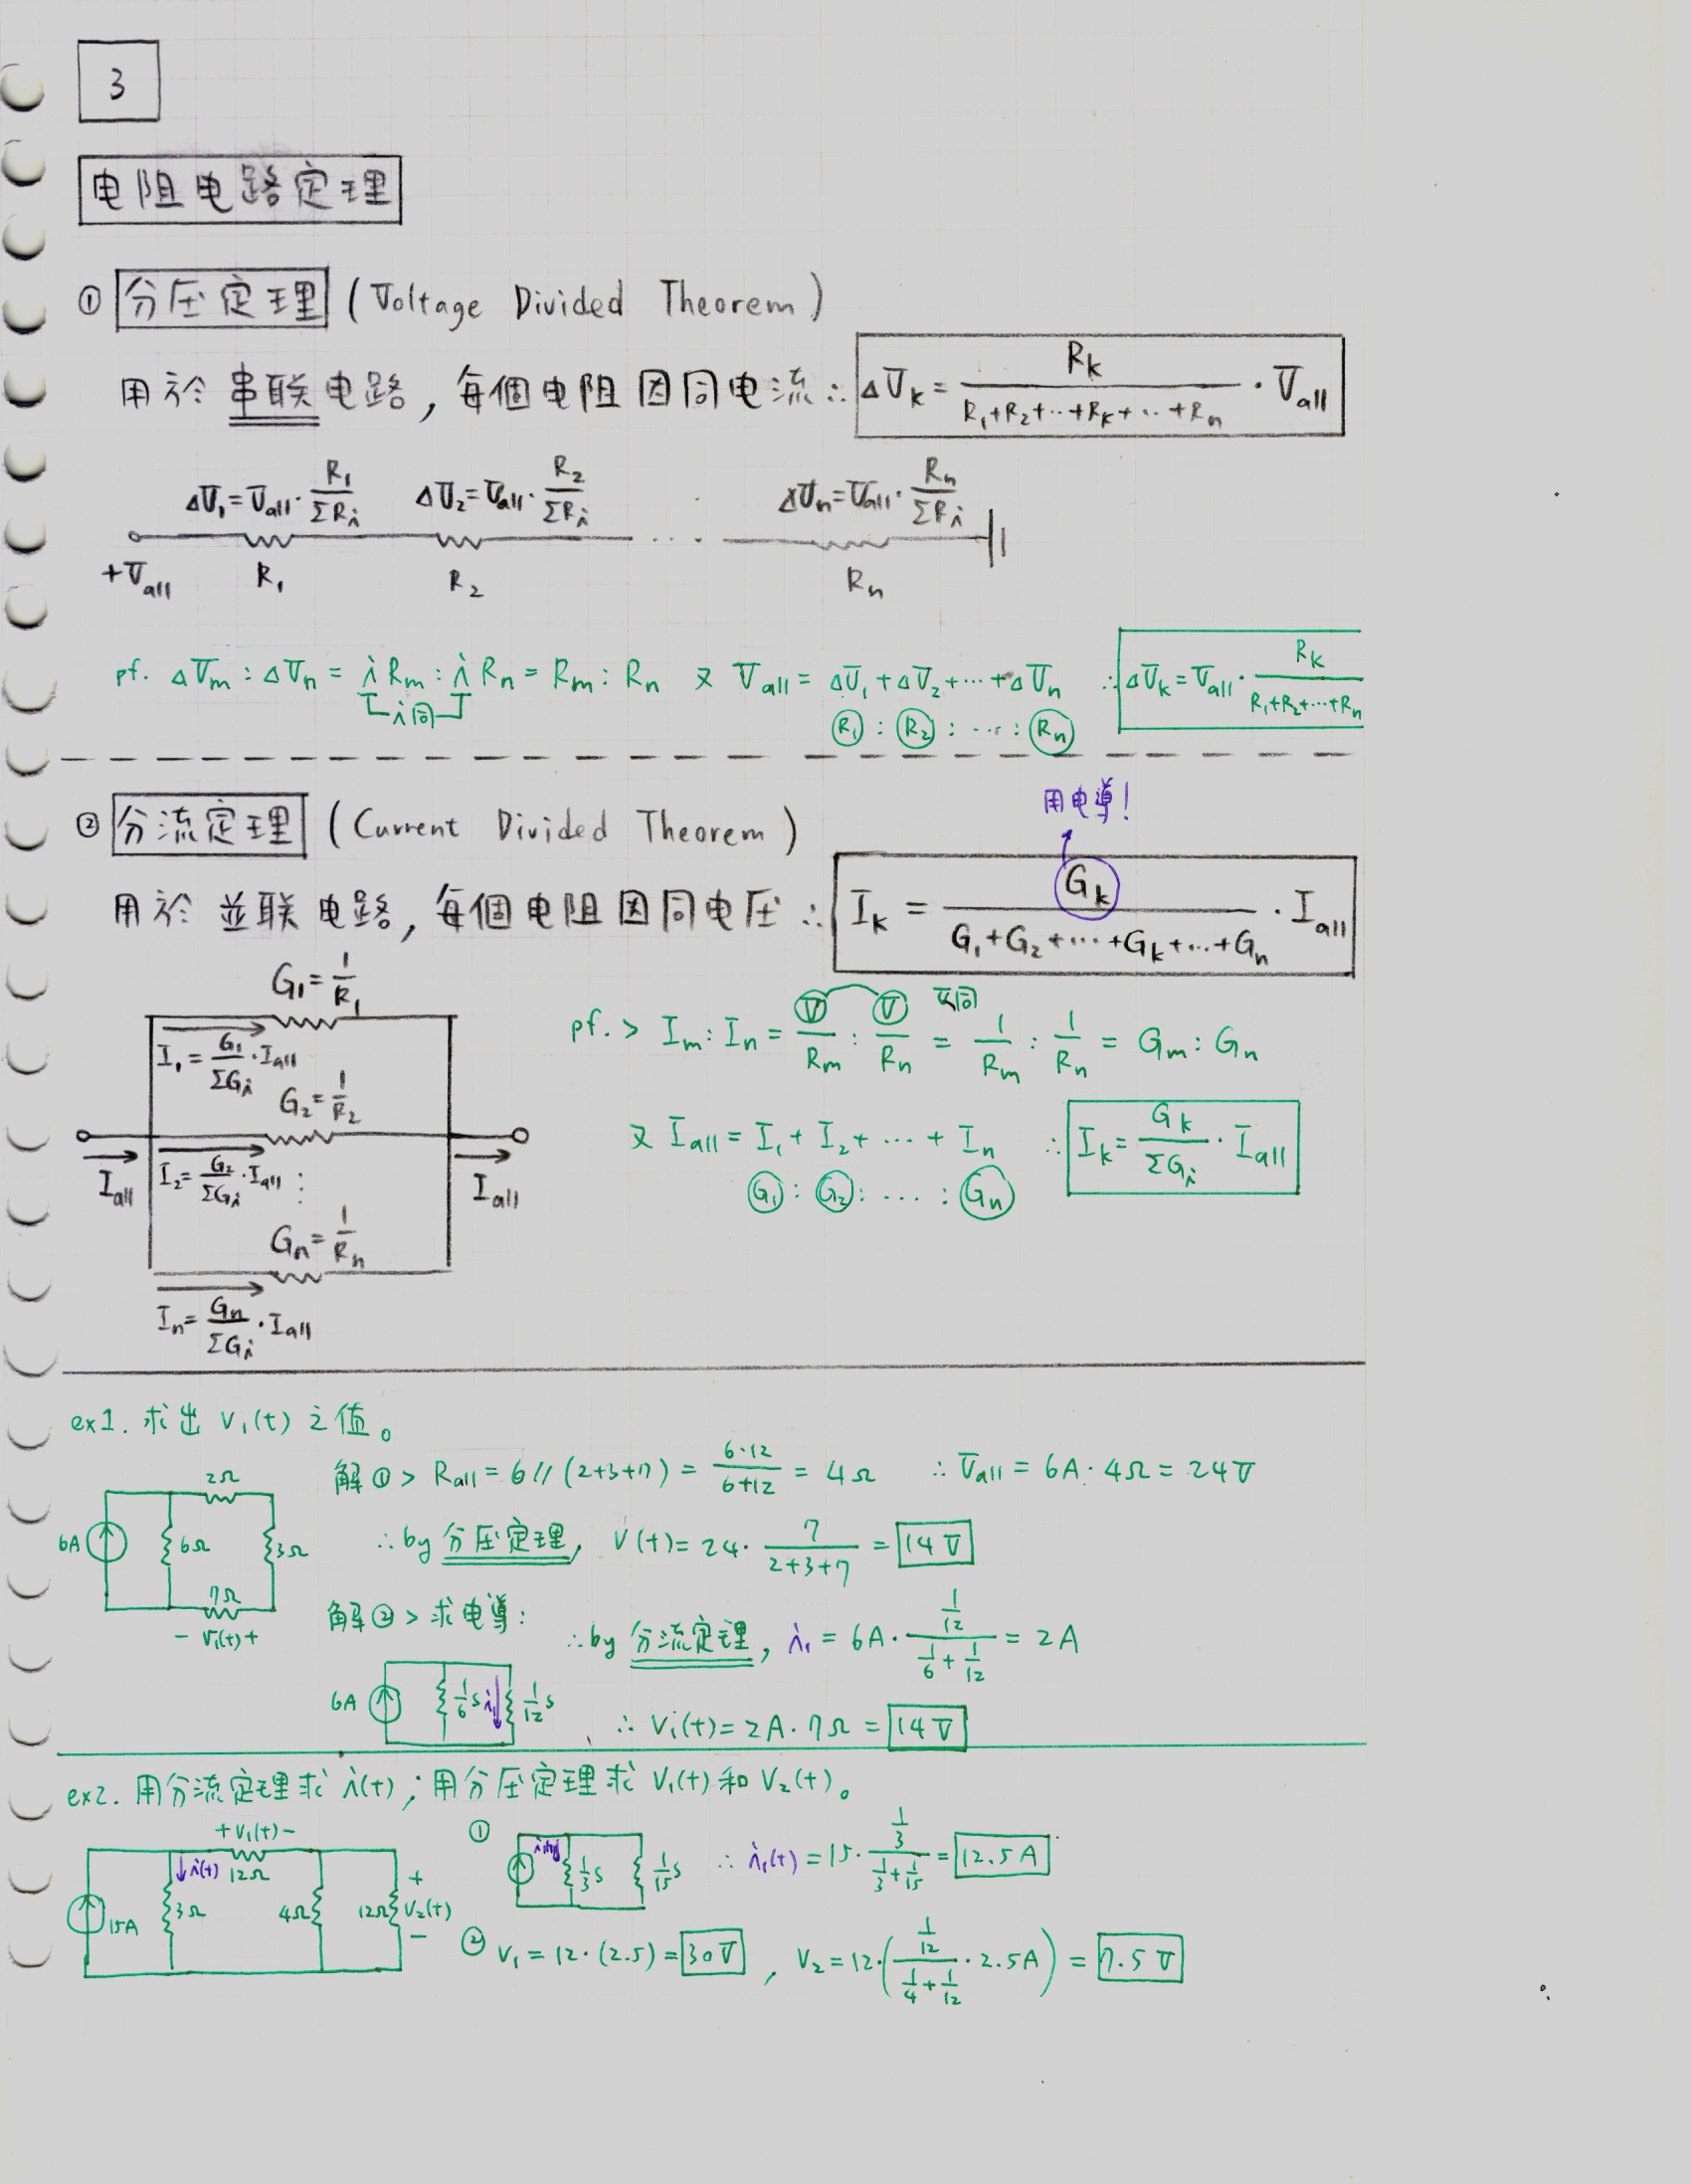 3
电阻电路定理
① 分压定理 (Voltage Divided Theorem)
用於 串联 电路, 每個电阻因同电流 ∴ ΔV_k = R_k / (R_1+R_2+‥+R_k+‥+R_n) · V_all
ΔV_1 = V_all · R_1/ΣR_i   ΔV_2 = V_all · R_2/ΣR_i   ‥   ΔV_n = V_all · R_n/ΣR_i
+V_all   R_1   R_2   ...   R_n
pf. ΔV_m : ΔV_n = i R_m : i R_n = R_m : R_n 又 V_all = ΔV_1 + ΔV_2 + ⋯ + ΔV_n ∴ ΔV_k = V_all · R_k / (R_1+R_2+⋯+R_n)
i同   R_1 : R_2 : ⋯ : R_n
用电導!
② 分流定理 (Current Divided Theorem)
用於 並联 电路, 每個电阻因同电压 ∴ I_k = G_k / (G_1+G_2+⋯+G_k+⋯+G_n) · I_all
G_1 = 1/R_1
I_1 = G_1/ΣG_i · I_all
G_2 = 1/R_2
I_all   I_2 = G_2/ΣG_i · I_all   ⋮   I_all
G_n = 1/R_n
I_n = G_n/ΣG_i · I_all
pf. > I_m : I_n = V/R_m : V/R_n = 1/R_m : 1/R_n = G_m : G_n
V同
又 I_all = I_1 + I_2 + ⋯ + I_n ∴ I_k = G_k/ΣG_i · I_all
G_1 : G_2 : ⋯ : G_n
ex1. 求出 V_1(t) 之值。
2Ω
6A   6Ω   3Ω
7Ω
- V_1(t) +
解①> R_all = 6 // (2+3+7) = 6·12/(6+12) = 4Ω ∴ V_all = 6A · 4Ω = 24V
∴ by 分压定理, V(t) = 24 · 7/(2+3+7) = 14V
解②> 求电導:
6A   1/6 S   i_1   1/12 S
∴ by 分流定理, i_1 = 6A · (1/12)/(1/6 + 1/12) = 2A
∴ V_1(t) = 2A · 7Ω = 14V
ex2. 用分流定理求 i(t) ; 用分压定理求 V_1(t) 和 V_2(t)。
+ V_1(t) -
i(t)   12Ω
15A   3Ω   4Ω   12Ω   + V_2(t) -
① 1/3 S   1/15 S ∴ i_1(t) = 15 · (1/3)/(1/3 + 1/15) = 12.5A
② V_1 = 12 · (2.5) = 30V , V_2 = 12 · ((1/12)/(1/4 + 1/12) · 2.5A) = 7.5V